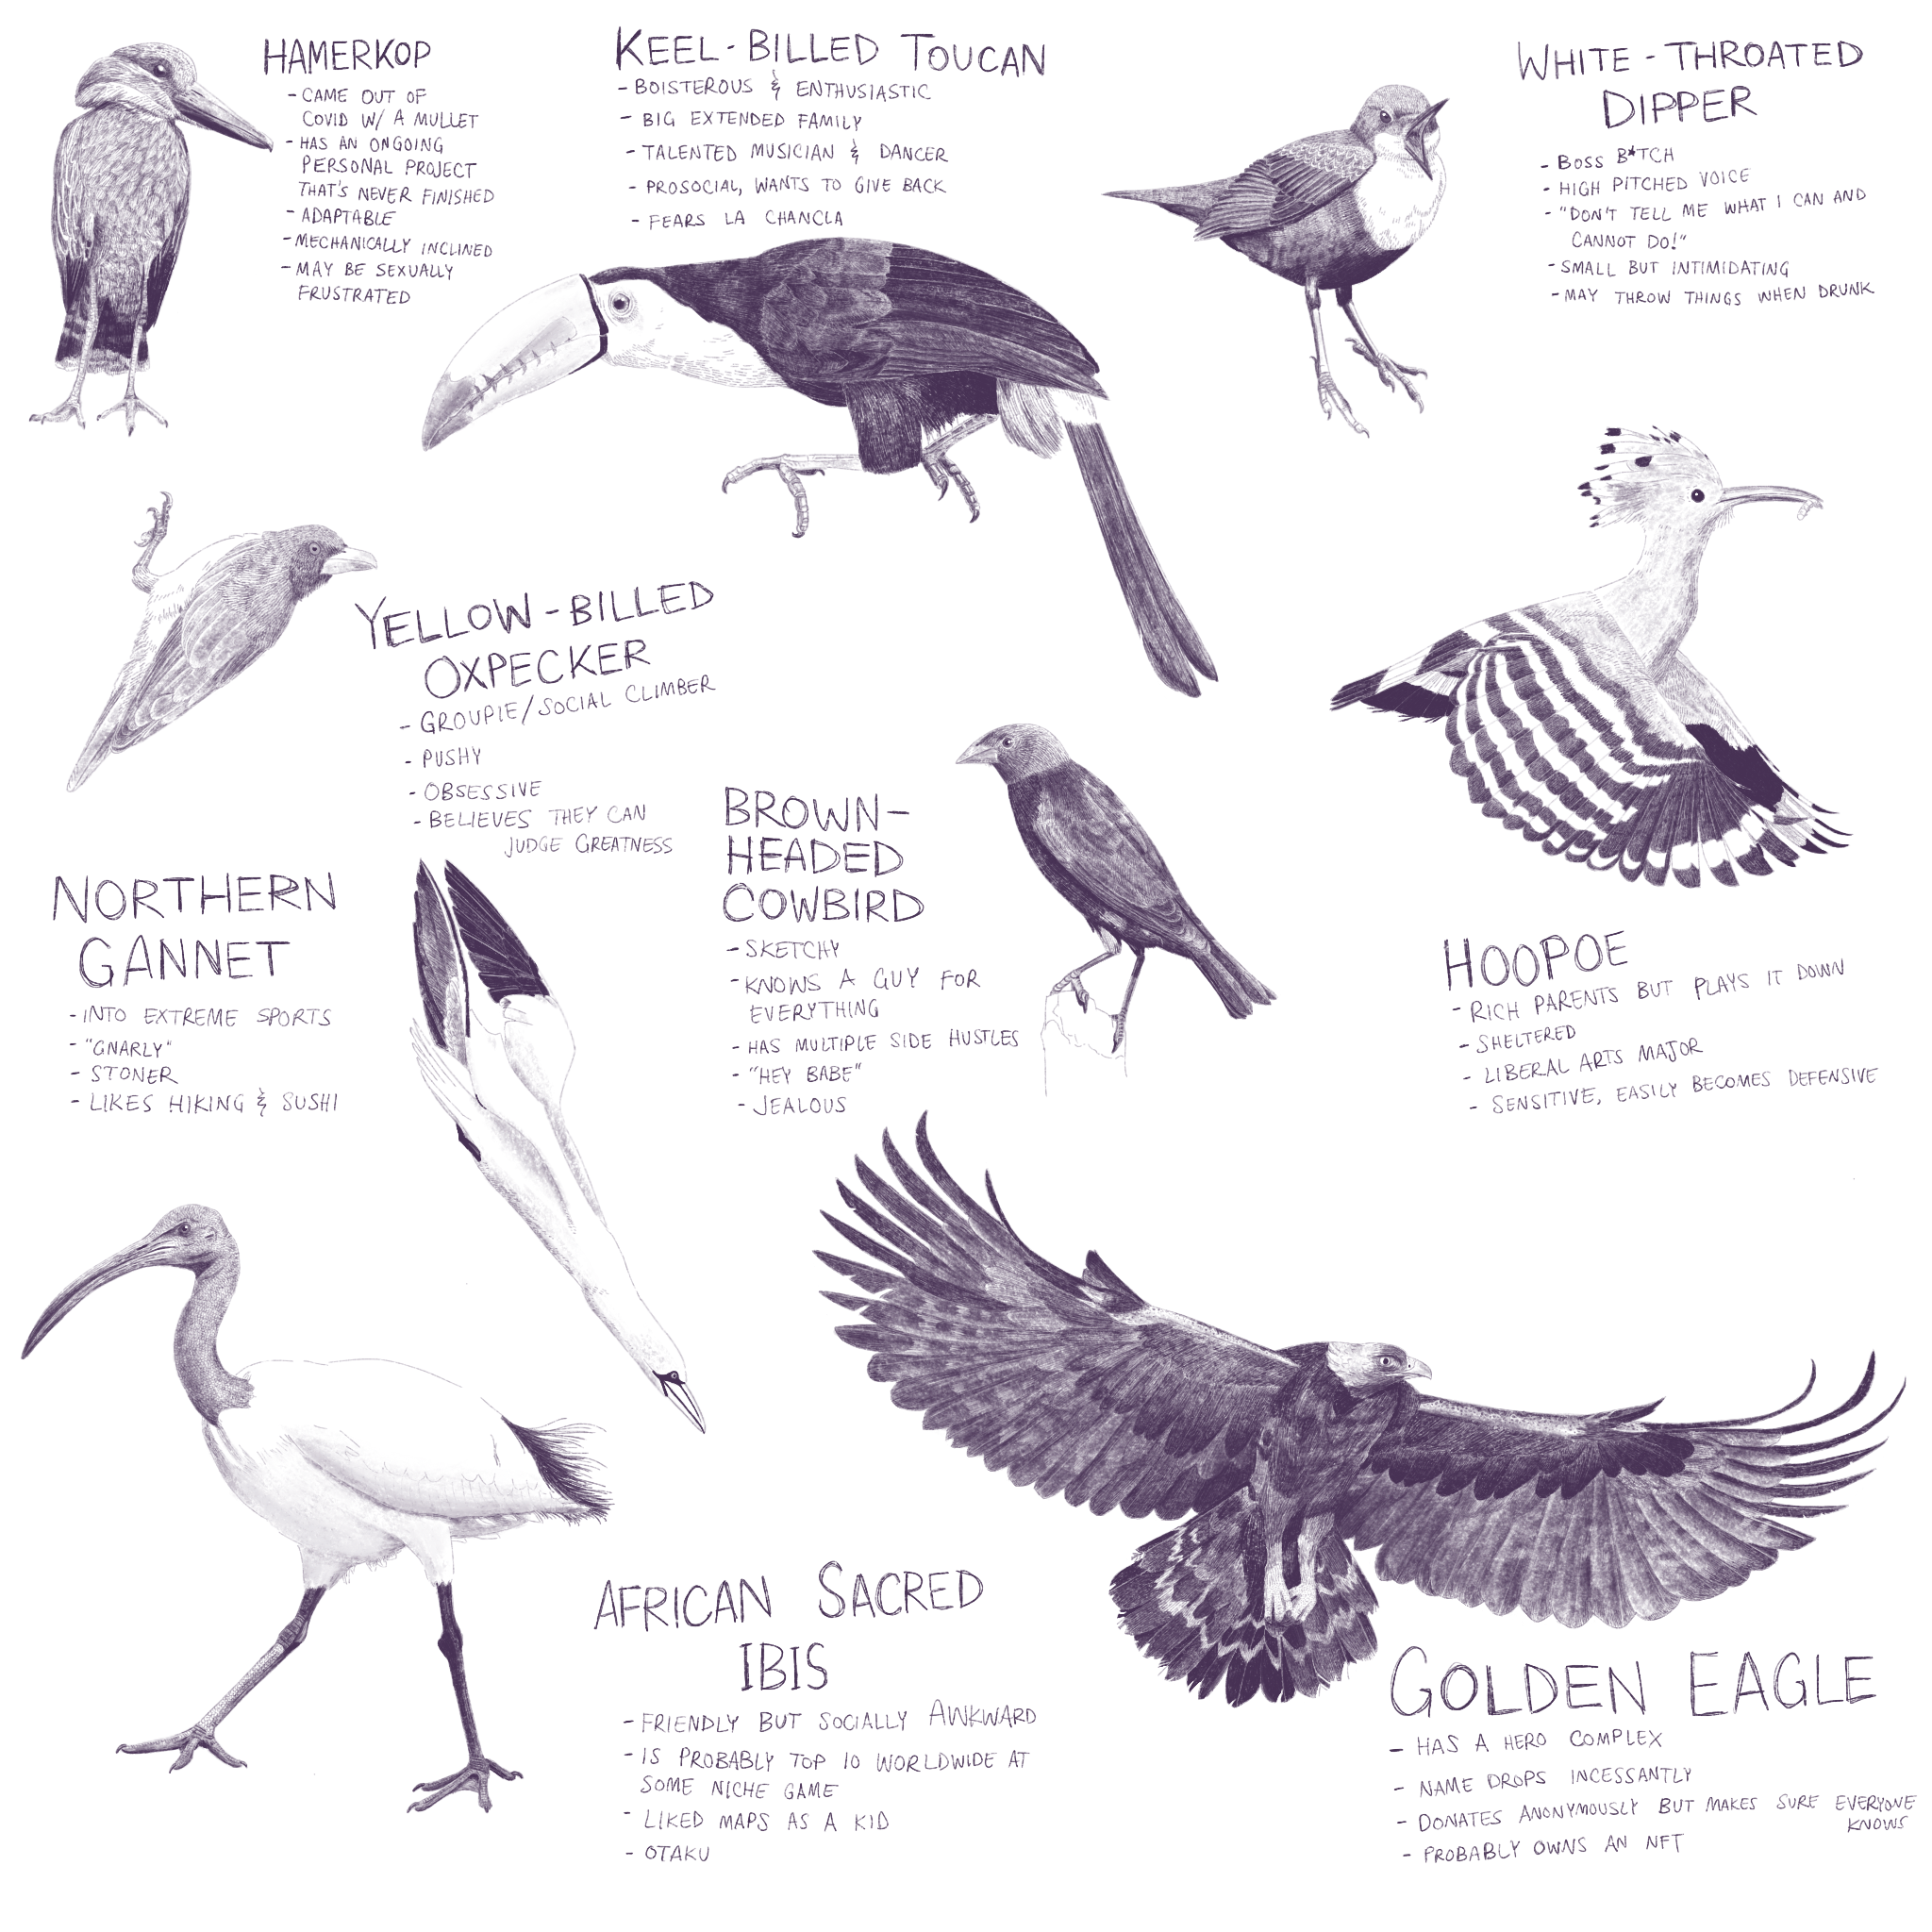 HAMERKOP
- CAME OUT OF
COVID W/ A MULLET
- HAS AN ONGOING
PERSONAL PROJECT
THAT'S NEVER FINISHED
- ADAPTABLE
- MECHANICALLY INCLINED
- MAY BE SEXUALLY
FRUSTRATED
KEEL-BILLED TOUCAN
- BOISTEROUS & ENTHUSIASTIC
- BIG EXTENDED FAMILY
- TALENTED MUSICIAN & DANCER
- PROSOCIAL, WANTS TO GIVE BACK
- FEARS LA CHANCLA
WHITE-THROATED
DIPPER
- BOSS B*TCH
- HIGH PITCHED VOICE
- "DON'T TELL ME WHAT I CAN AND
CANNOT DO!"
- SMALL BUT INTIMIDATING
- MAY THROW THINGS WHEN DRUNK
YELLOW-BILLED
OXPECKER
- GROUPIE/SOCIAL CLIMBER
- PUSHY
- OBSESSIVE
- BELIEVES THEY CAN
JUDGE GREATNESS
NORTHERN
GANNET
- INTO EXTREME SPORTS
- "GNARLY"
- STONER
- LIKES HIKING & SUSHI
BROWN-
HEADED
COWBIRD
- SKETCHY
- KNOWS A GUY FOR
EVERYTHING
- HAS MULTIPLE SIDE HUSTLES
- "HEY BABE"
- JEALOUS
HOOPOE
- RICH PARENTS BUT PLAYS IT DOWN
- SHELTERED
- LIBERAL ARTS MAJOR
- SENSITIVE, EASILY BECOMES DEFENSIVE
AFRICAN SACRED
IBIS
- FRIENDLY BUT SOCIALLY AWKWARD
- IS PROBABLY TOP 10 WORLDWIDE AT
SOME NICHE GAME
- LIKED MAPS AS A KID
- OTAKU
GOLDEN EAGLE
- HAS A HERO COMPLEX
- NAME DROPS INCESSANTLY
- DONATES ANONYMOUSLY BUT MAKES SURE EVERYONE
KNOWS
- PROBABLY OWNS AN NFT